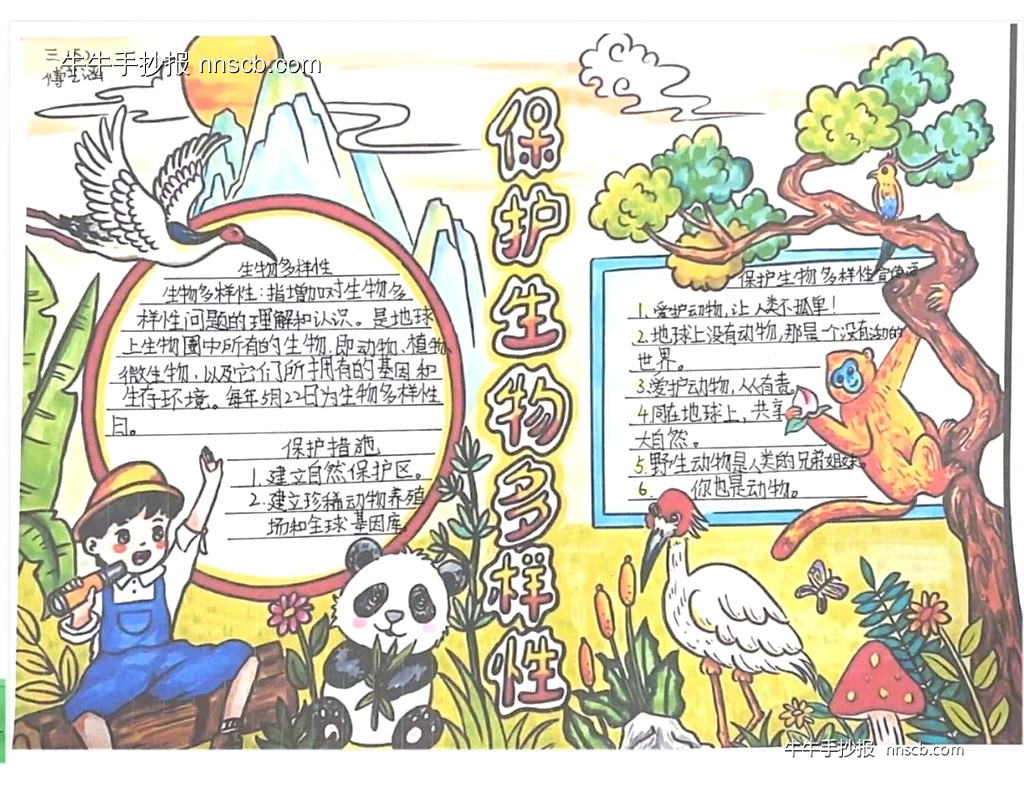 牛牛手抄报 nnscb.com
保护生物多样性
生物多样性
生物多样性:指增加对生物多
样性问题的理解和认识。是地球
上生物圈中所有的生物,即动物、植物
微生物,以及它们所拥有的基因和
生存环境。每年5月22日为生物多样性
日。
保护措施
1.建立自然保护区。
2.建立珍稀动物养殖
场和全球基因库
保护生物多样性宣传
1.爱护动物,让人类不孤单!
2.地球上没有动物,那是一个没有活动的
世界。
3.爱护动物,人人有责
4.同在地球上,共享
大自然。
5.野生动物是人类的兄弟姐妹
6. 你也是动物。
牛牛手抄报 nnscb.com